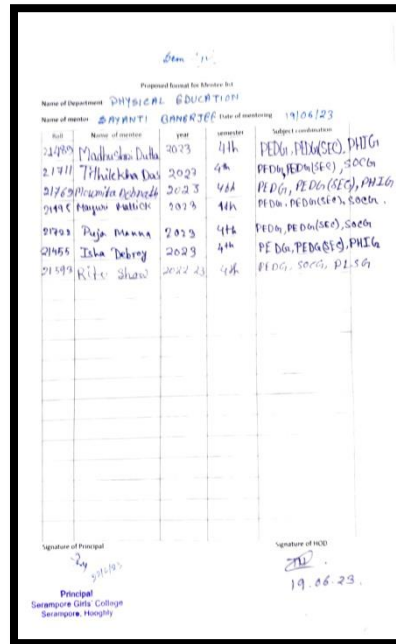 Sem "IV"
Proposed format for Mentee list
Name of Department PHYSICAL EDUCATION
Name of mentor SAYANTI BANERJEE Date of mentoring 19/06/23
Roll Name of mentee year semester Subject combination
Madhusha Dutta 2023 4th PEDG, PEDG(SEC), PHIG
21711 Tithilekha Das 2023 4th PEDG, PEDG(SEC), SOCG
21769 Moumita Debnath 2023 4th PEDG, PEDG(SEC), PHIG
Mayuri Mallick 2023 4th PEDG, PEDG(SEC), SOCG.
Puja Manna 2023 4th PEDG, PEDG(SEC), SOCG
21455 Isha Debroy 2023 4th PEDG, PEDG(SEC), PHIG
21593 Ritu Shaw 2022 23 4th PEDG, SOCG, PLSG
Signature of Principal Signature of HOD
19.06.23.
Principal
Serampore Girls' College
Serampore, Hooghly